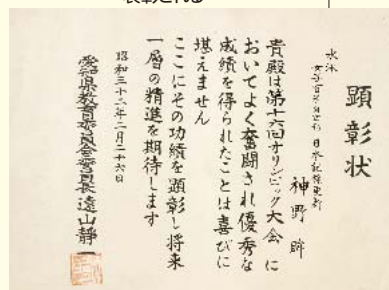 表彰される
顕彰状
水泳
女子百米自由形 日本記録更新
神野 眸
貴殿は第十六回オリンピック大会に
おいてよく奮闘され優秀な
成績を得られたことは喜びに
堪えません
ここにその功績を顕彰し将来
一層の精進を期待します
昭和三十二年二月二十六日
愛知県教育委員会委員長 遠山静一